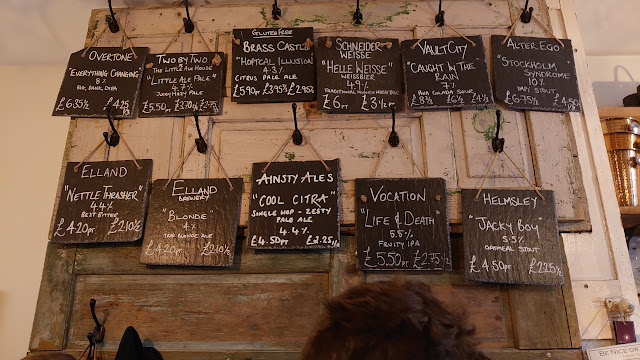 OVERTONE
"EVERYTHING CHANGING"
8%
£6.35½ £4.25⅓
TWO BY TWO
THE LITTLE ALE HOUSE
"LITTLE ALE PALE"
4.7%
JUICY HAZY PALE
£5.50PT £2.75½
GLUTEN FREE
BRASS CASTLE
"HOPTCAL ILLUSION"
4.3%
CITRUS PALE ALE
£5.90PT £3.95⅔ £2.95½
SCHNEIDER
WEISSE
"HELLE WEISSE"
WEISSBIER
4.9%
TRADITIONAL MUNICH WHEAT BEER
£6PT £3½PT
VAULT CITY
"CAUGHT IN THE
RAIN"
7%
PINA COLADA SOUR
ALTER EGO
"STOCKHOLM
SYNDROME"
10%
IMP/ STOUT
£6.75½ £4.50⅓
ELLAND
"NETTLE THRASHER"
4.4%
BEST BITTER
£4.20PT £2.10½
ELLAND
BREWERY
"BLONDE"
4%
BLONDE ALE
£4.20PT £2.10½
AINSTY ALES
"COOL CITRA"
SINGLE HOP - ZESTY
PALE ALE
4.4%
£4.50PT £2.25½
VOCATION
"LIFE & DEATH"
5.5%
FRUITY IPA
£5.50PT £2.75½
HELMSLEY
"JACKY BOY"
5.5%
OATMEAL STOUT
£4.50PT £2.25½
BE NICE OR